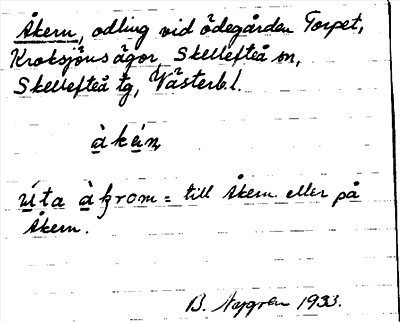 Åkern, odling vid ödegården Torpet,
Kroksjöns ägor, Skellefteå sn,
Skellefteå tg, Västerb.l.
àkén
úta àkrom = till Åkern eller på
Åkern.
B. Nygren 1933.